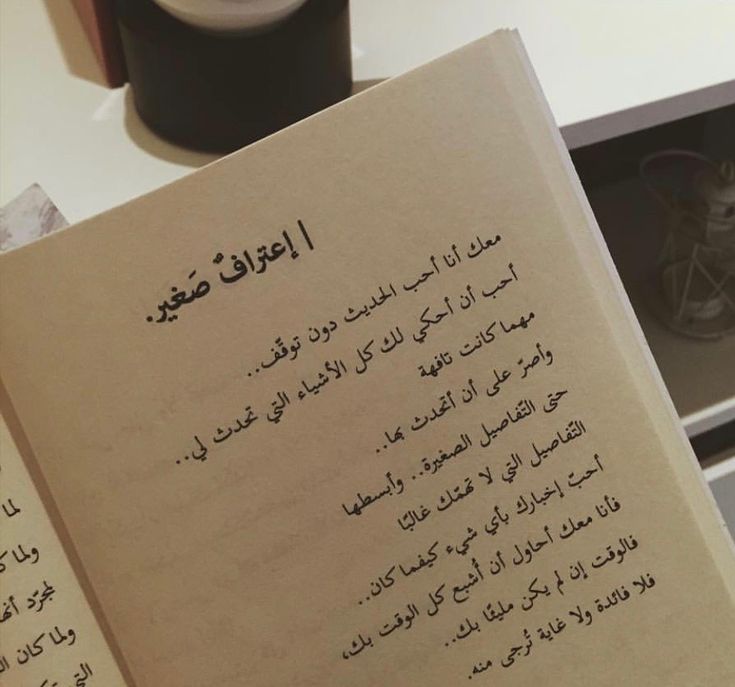 | إعترافٌ صَغير.
معك أنا أحب الحديث دون توقّف..
أحب أن أحكي لك كل الأشياء التي تحدث لي..
مهما كانت تافهة
وأصرّ على أن أتحدث بها..
حتى التّفاصيل الصغيرة.. وأبسطها
التّفاصيل التي لا تهمّك غالبًا
أحبّ إخبارك بأي شيء كيفما كان..
فأنا معك أحاول أن أُشبع كل الوقت بك،
فالوقت إن لم يكن مليئًا بك..
فلا فائدة ولا غاية تُرجى منه.
لما
ولما
لمجرّد
ولما كان
التي